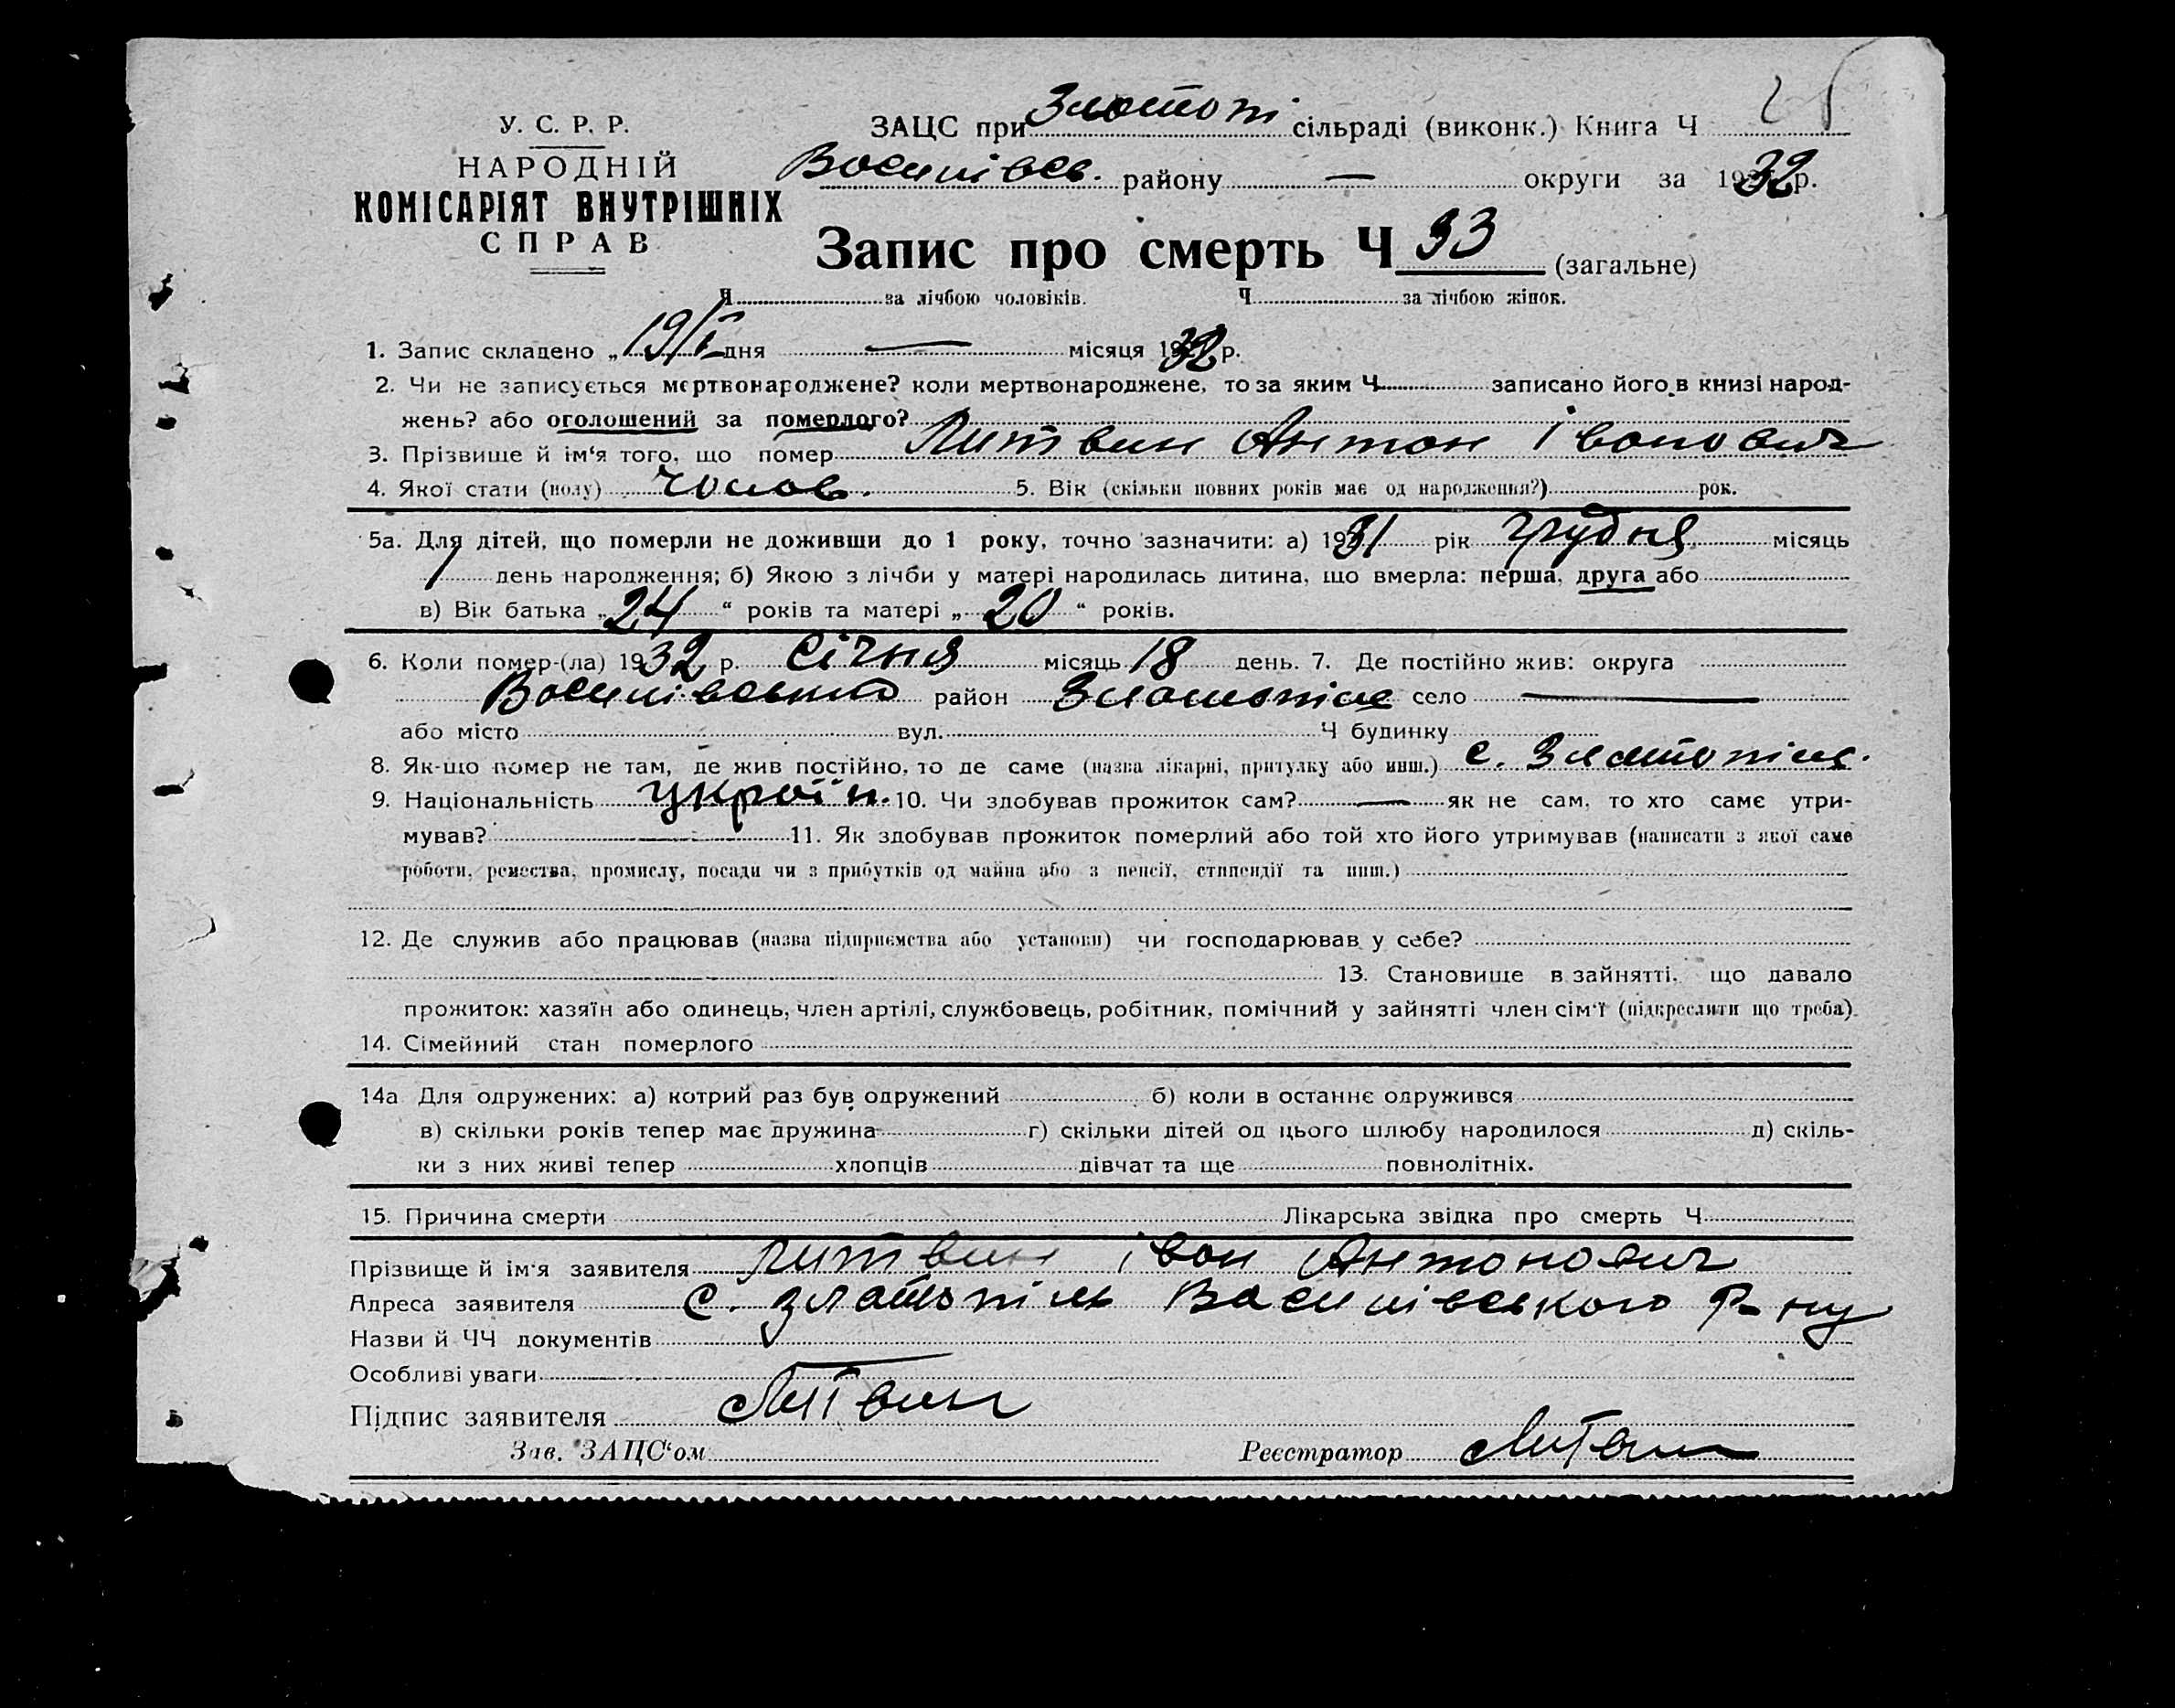 У. С. Р. Р.
НАРОДНІЙ
КОМІСАРІЯТ ВНУТРІШНІХ
СПРАВ
ЗАЦС при Златопі сільраді (виконк.) Книга Ч
Василівсь. району — округи за 1932 р.
Запис про смерть Ч 33 (загальне)
Ч за лічбою чоловіків. Ч за лічбою жінок.
1. Запис складено „19/I дня — місяця 1932 р.
2. Чи не записується мертвонароджене? коли мертвонароджене, то за яким Ч записано його в книзі народ-
жень? або оголошений за померлого?
3. Прізвище й ім'я того, що помер Литвин Антон Іванович
4. Якої стати (полу) чолов. 5. Вік (скільки повних років має од народження?) рок.
5а. Для дітей, що померли не доживши до 1 року, точно зазначити: а) 1931 рік грудня місяць
1 день народження; б) Якою з лічби у матері народилась дитина, що вмерла: перша, друга або
в) Вік батька „24“ років та матері „20“ років.
6. Коли помер-(ла) 1932 р. січня місяць 18 день. 7. Де постійно жив: округа
Василівсько район Златопіль село —
або місто вул. Ч будинку
8. Як-що помер не там, де жив постійно, то де саме (назва лікарні, притулку або инш.) с. Златопіль.
9. Національність україн. 10. Чи здобував прожиток сам? — як не сам, то хто саме утри-
мував? 11. Як здобував прожиток померлий або той хто його утримував (написати з якої саме
роботи, ремества, промислу, посади чи з прибутків од майна або з пенсії, стипендії та инш.)
12. Де служив або працював (назва підприємства або установи) чи господарював у себе?
13. Становище в зайнятті, що давало
прожиток: хазяїн або одинець, член артілі, службовець, робітник, помічний у зайнятті член сім'ї (підкреслити що треба).
14. Сімейний стан померлого
14а Для одружених: а) котрий раз був одружений б) коли в останнє одружився
в) скільки років тепер має дружина г) скільки дітей од цього шлюбу народилося д) скіль-
ки з них живі тепер хлопців дівчат та ще повнолітніх.
15. Причина смерти Лікарська звідка про смерть Ч
Прізвище й ім'я заявителя Литвин Іван Антонович
Адреса заявителя с. Златопіль Василівського р-ну
Назви й ЧЧ документів
Особливі уваги
Підпис заявителя Литвин
Зав. ЗАЦС'ом Реєстратор Литвин